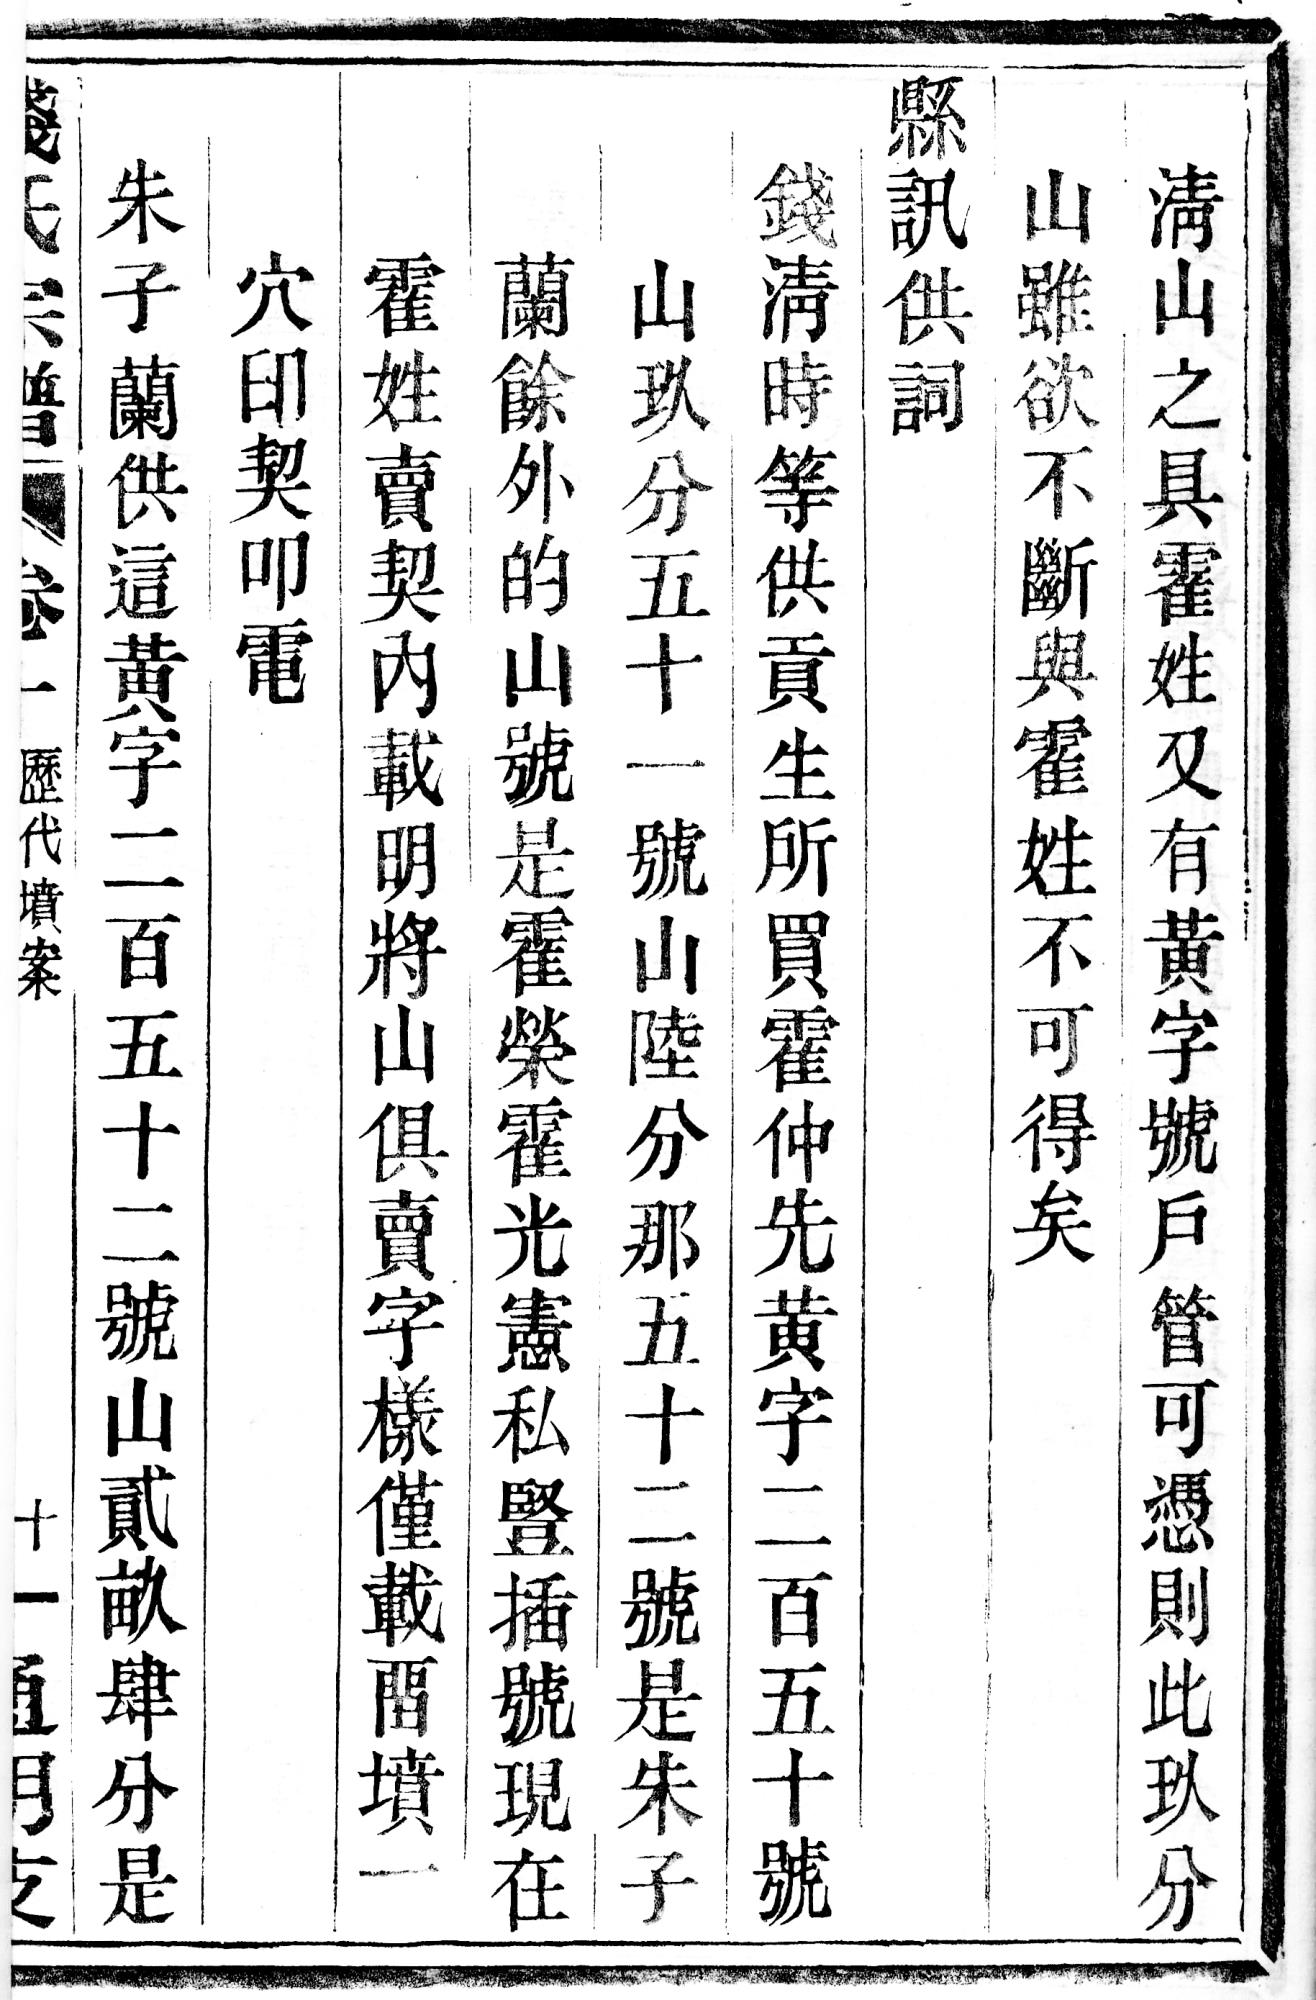 淸山之具霍姓又有黃字號戶管可憑則此玖分
山雖欲不斷與霍姓不可得矣
縣訊供詞
錢淸時等供貢生所買霍仲先黃字二百五十號
山玖分五十一號山陸分那五十二號是朱子
蘭餘外的山號是霍榮霍光憲私豎插號現在
霍姓賣契內載明將山俱賣字樣僅載畱墳一
穴印契叩電
朱子蘭供這黃字二百五十二號山貳畝肆分是
錢氏宗譜 卷一 歷代墳案 十一 通明支